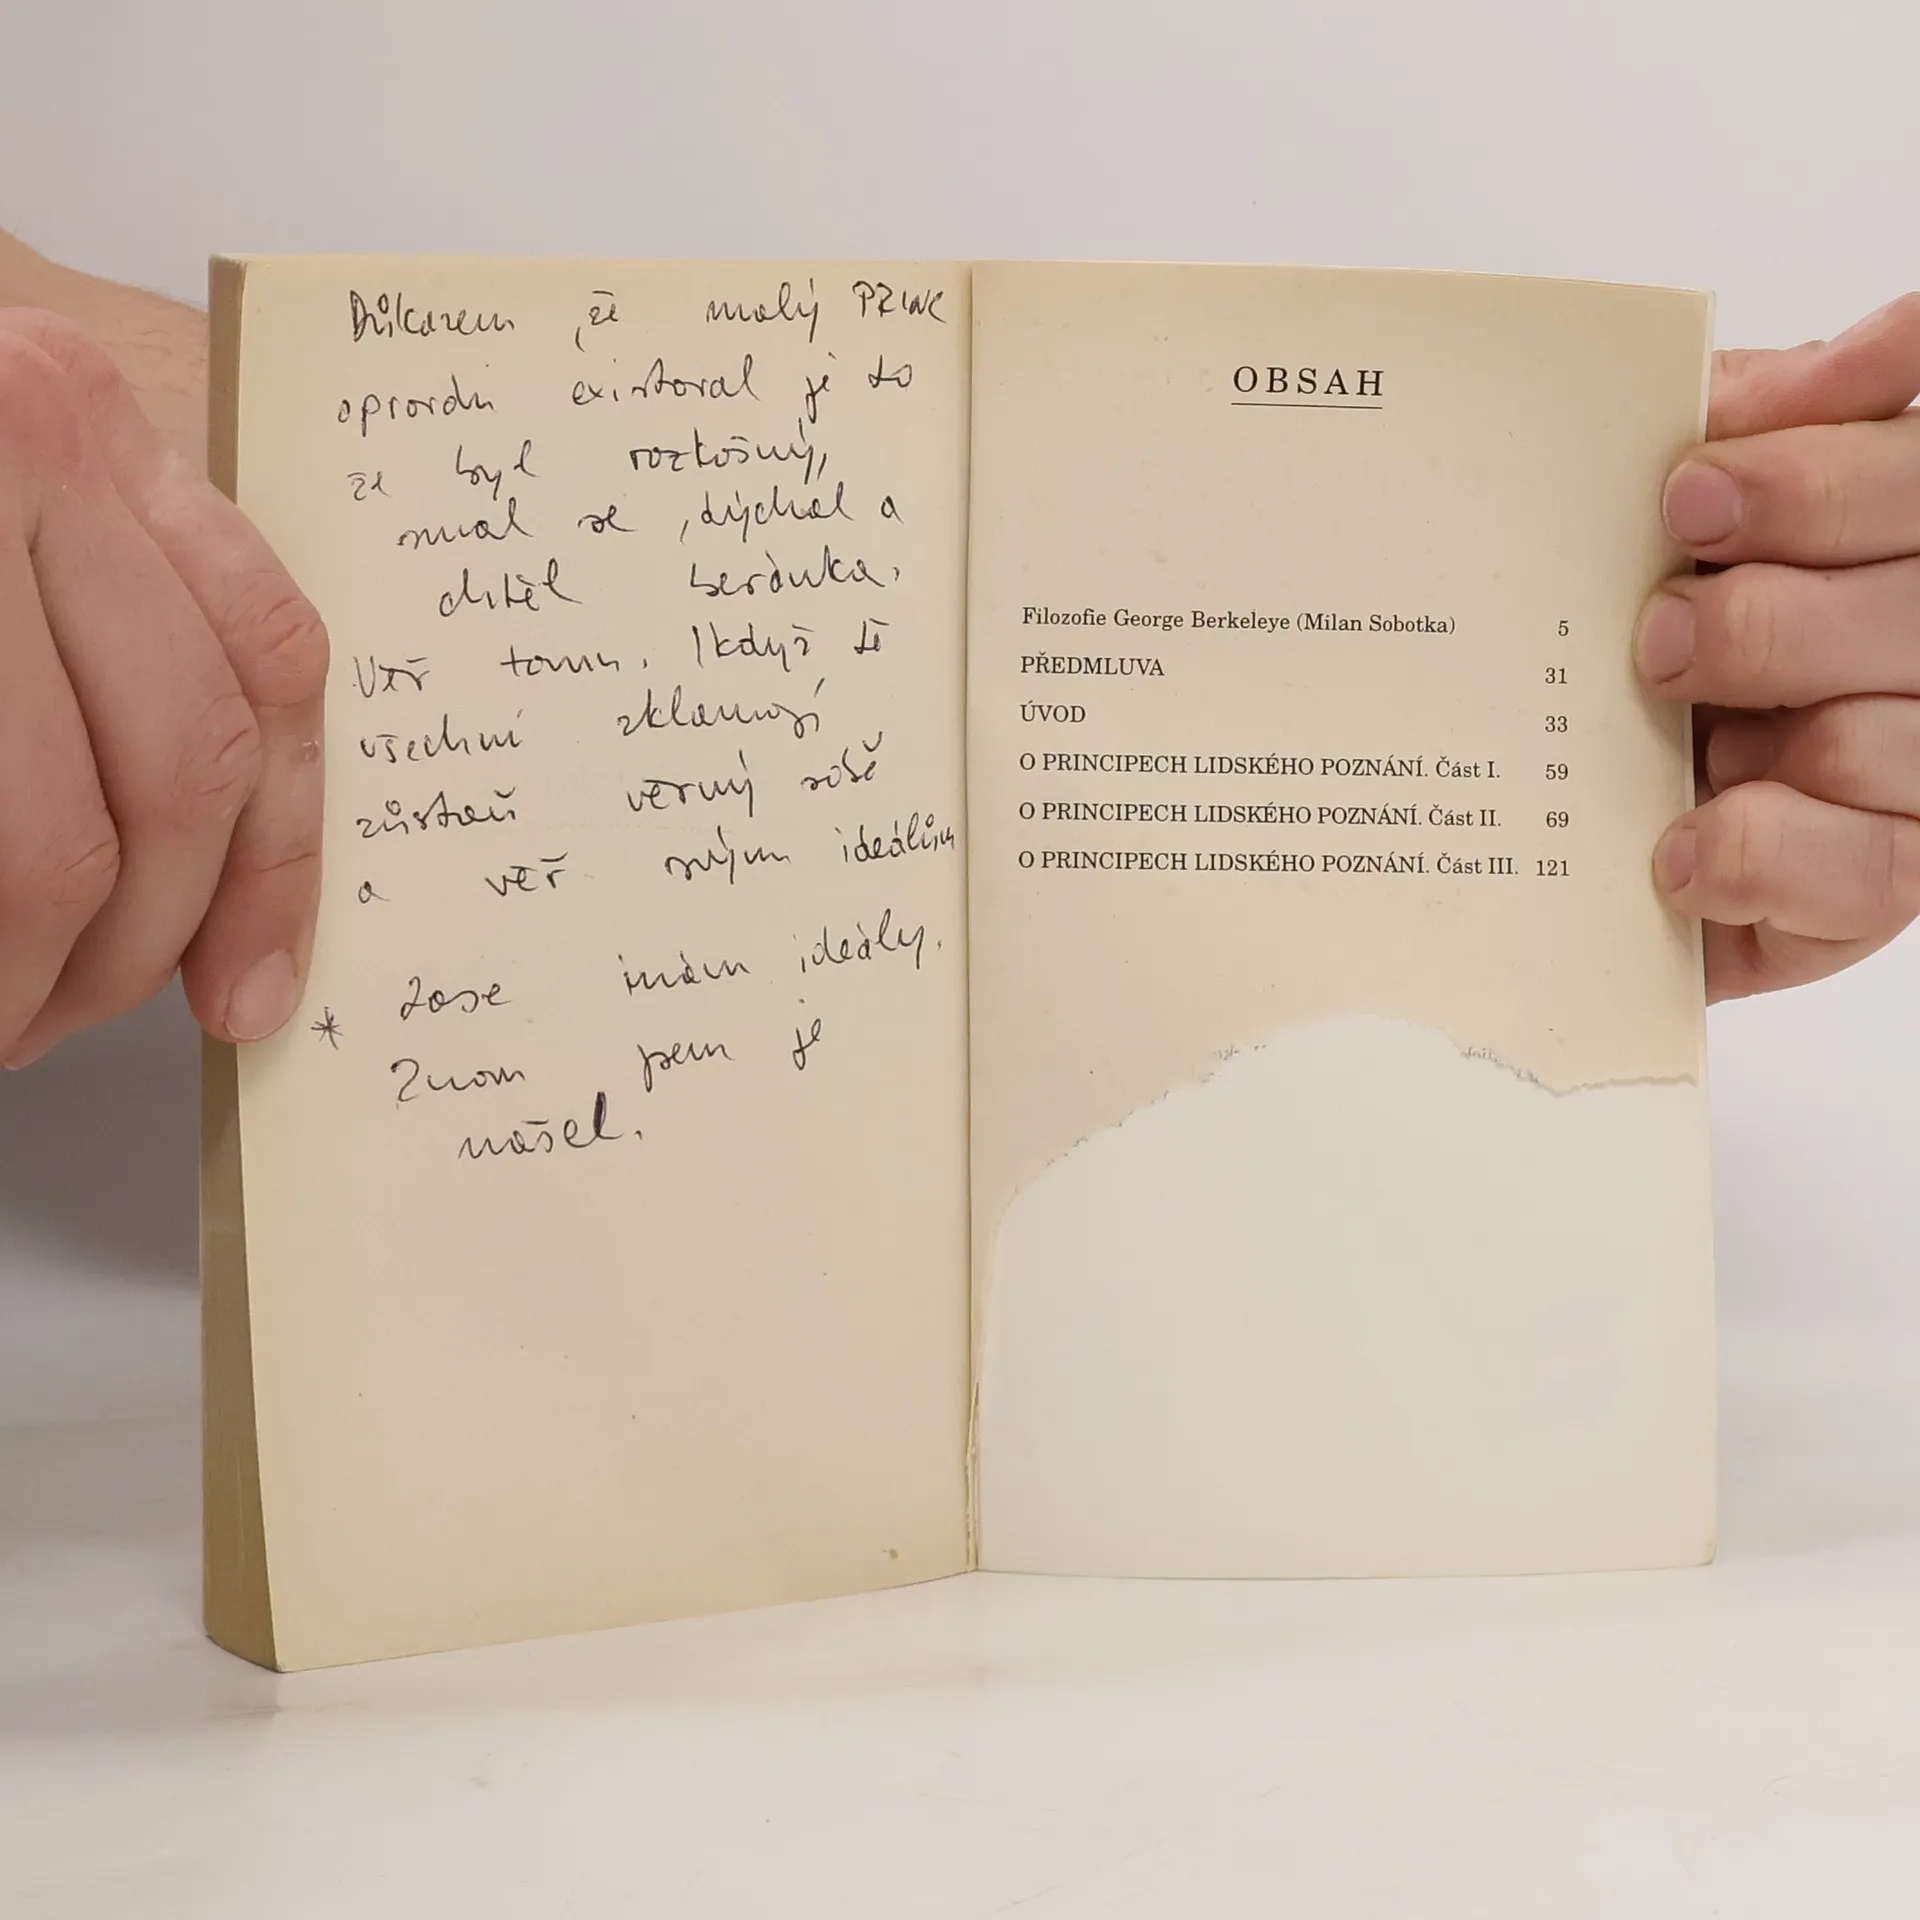 Důkazem, že malý PRINC
opravdu existoval je to
že byl rozkošný,
smál se, dýchal a
chtěl beránka.
Věř tomu. I když tě
všichni zklamají
zůstaň věrný růži
a věř svým ideálům
Zase mám ideály.
* Znovu jsem je
našel.
OBSAH
Filozofie George Berkeleye (Milan Sobotka) 5
PŘEDMLUVA 31
ÚVOD 33
O PRINCIPECH LIDSKÉHO POZNÁNÍ. Část I. 59
O PRINCIPECH LIDSKÉHO POZNÁNÍ. Část II. 69
O PRINCIPECH LIDSKÉHO POZNÁNÍ. Část III. 121